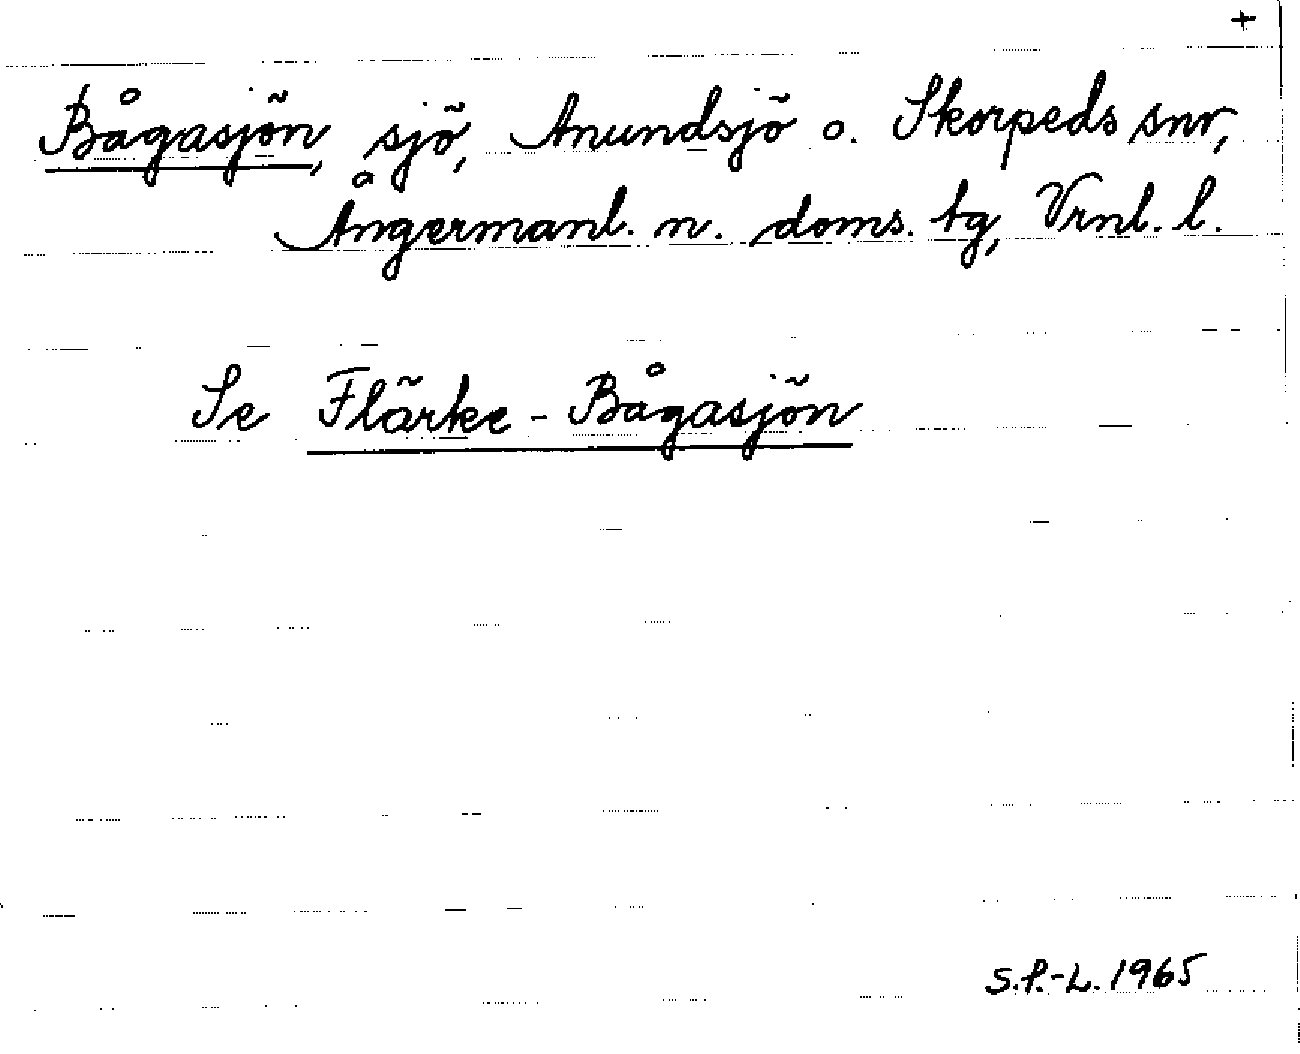 +
Bågasjön, sjö, Anundsjö o. Skorpeds snr,
Ångermanl. n. doms. tg, Vrnl. l.
Se Flärke-Bågasjön
S.P.-L. 1965